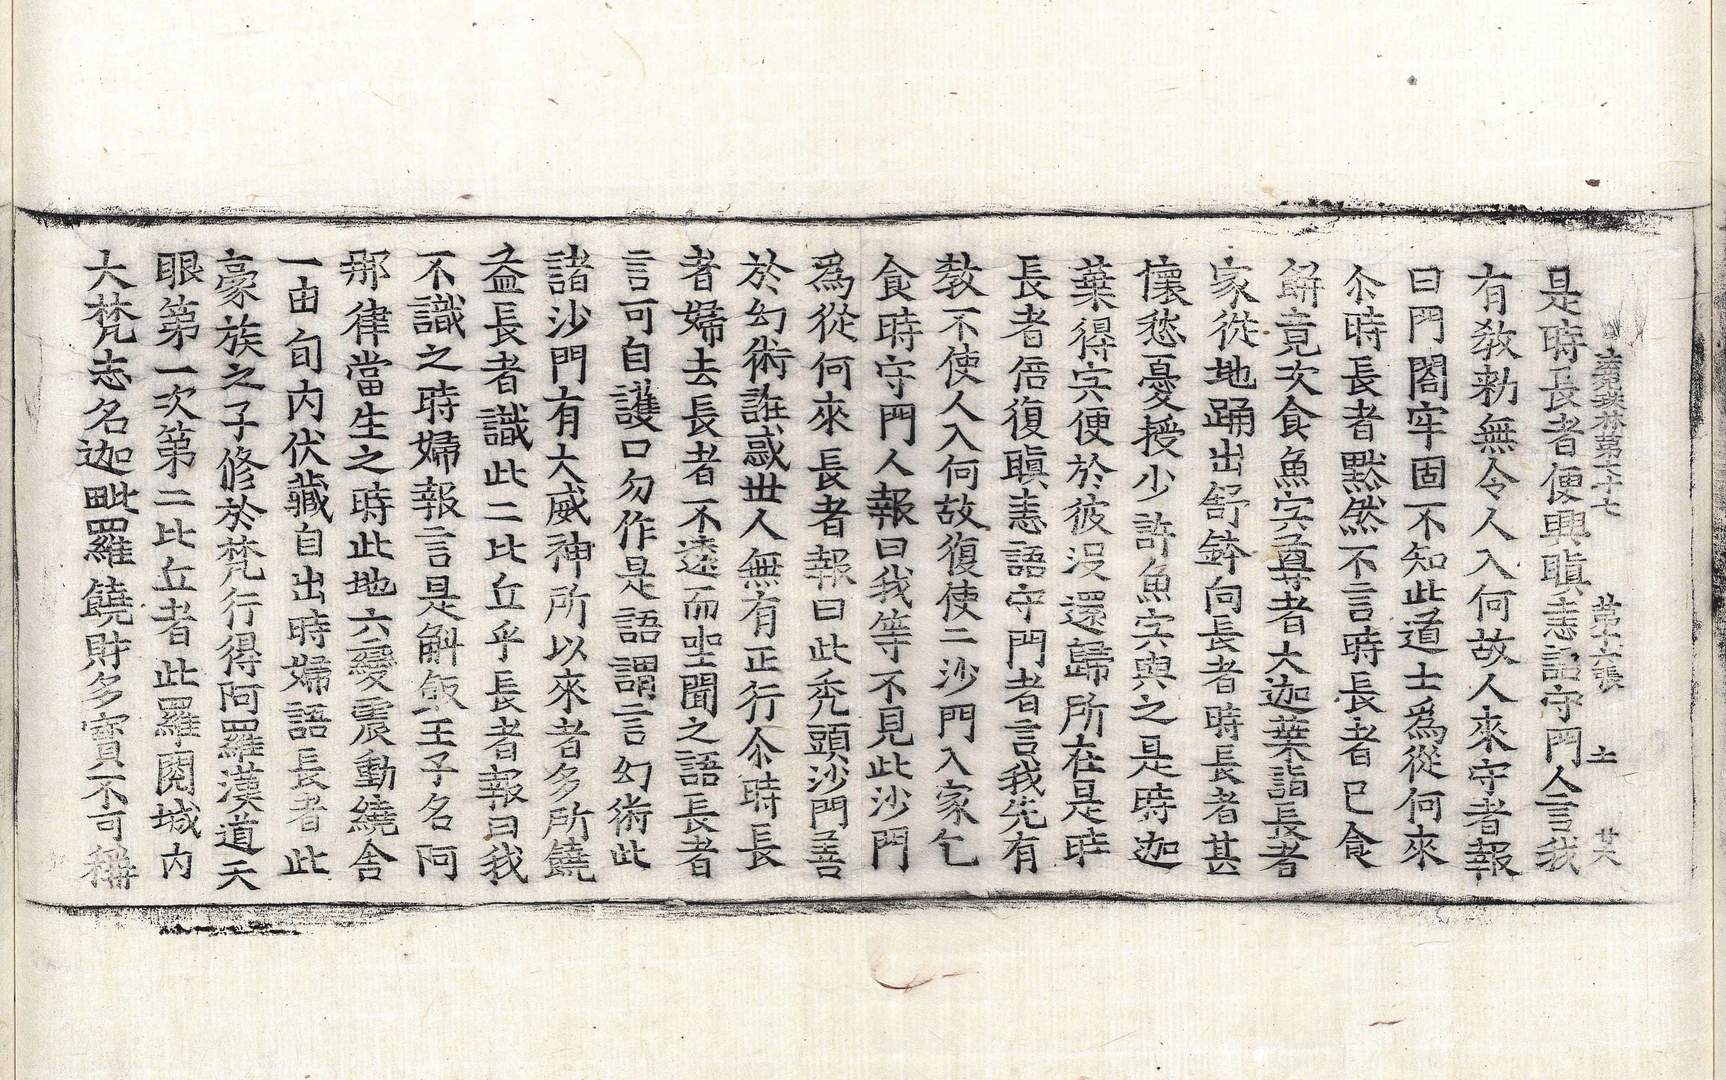 苑珠林第六十七 第十六張 士 廿六
是時長者便興瞋恚語守門人言我
有教勑無令人入何故人來守者報
曰門閤牢固不知此道士為從何來
尒時長者黙然不言時長者已食
餅竟次食魚宍尊者大迦葉詣長者
家從地踊出舒鉢向長者時長者甚
懷愁憂授少許魚宍與之是時迦
葉得宍便於彼沒還歸所在是時
長者倍復瞋恚語守門者言我先有
教不使人入何故復使二沙門入家乞
食時守門人報曰我等不見此沙門
為從何來長者報曰此禿頭沙門善
於幻術誑惑世人無有正行尒時長
者婦去長者不遠而坐聞之語長者
言可自護口勿作是語謂言幻術此
諸沙門有大威神所以來者多所饒
益長者識此二比丘乎長者報曰我
不識之時婦報言是斛飯王子名阿
那律當生之時此地六變震動繞舍
一由旬內伏藏自出時婦語長者此
豪族之子修於梵行得阿羅漢道天
眼第一次第二比丘者此羅閱城內
大梵志名迦毗羅饒財多寶不可稱